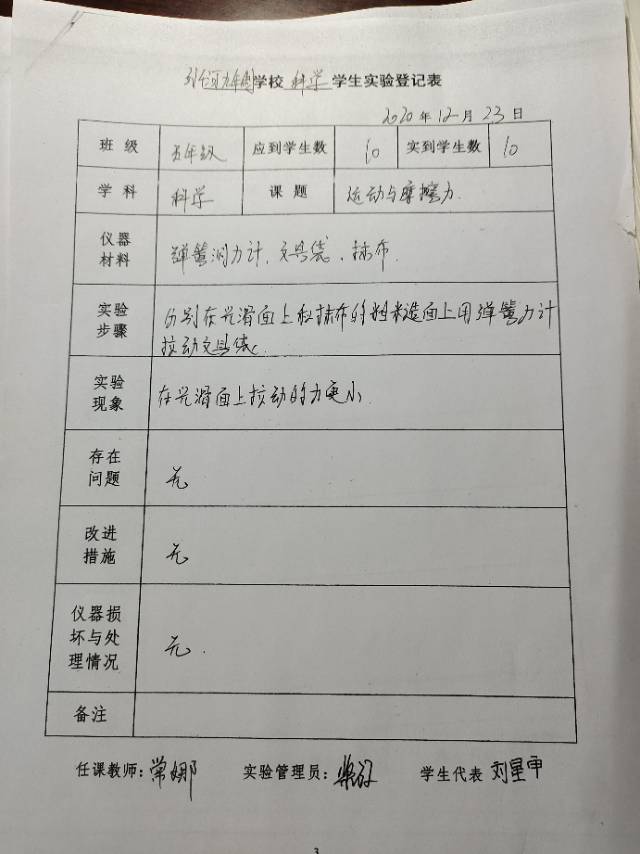 九年制学校 科学 学生实验登记表
2020年12月23日
班级 五年级 应到学生数 10 实到学生数 10
学科 科学 课题 运动与摩擦力
仪器材料 弹簧测力计、文具袋、抹布
实验步骤 分别在光滑面上和抹布的粗糙面上用弹簧力计
拉动文具袋
实验现象 在光滑面上拉动的力更小
存在问题 无
改进措施 无
仪器损坏与处理情况 无.
备注
任课教师:常娜 实验管理员: 学生代表 刘星甲
3